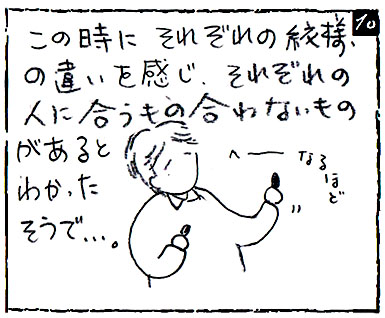 10
この時にそれぞれの紋様、
の違いを感じ、それぞれの
人に合うもの合わないもの
があると
わかった
そうで…。
へー
なるほど